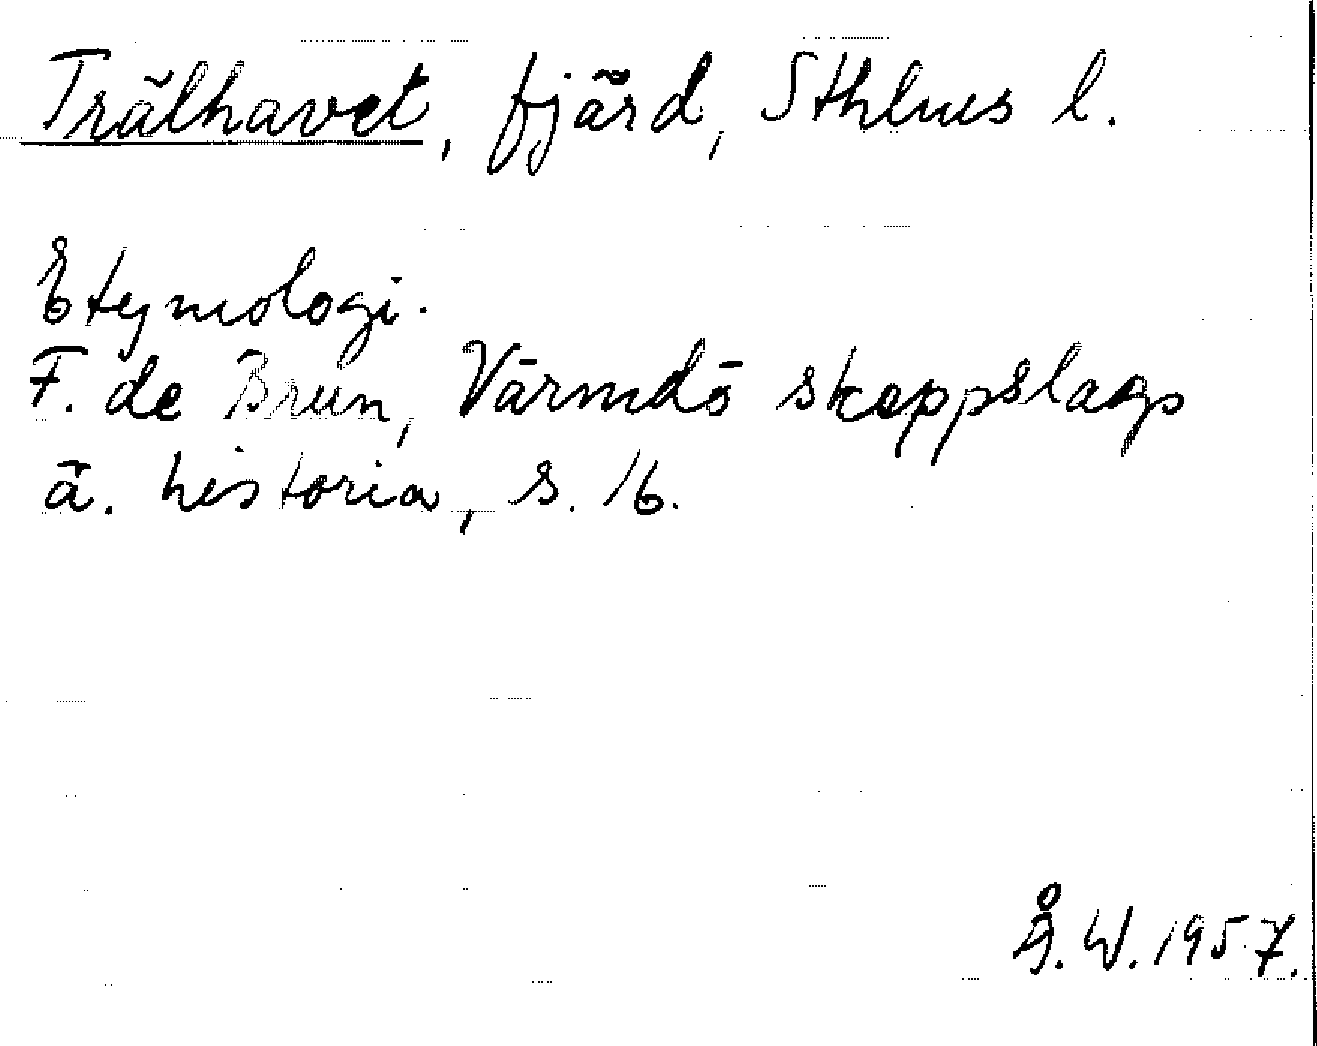 Trälhavet, fjärd, Sthlms l.
Etymologi.
F. de Brun, Värmdö skeppslags
ä. historia, s. 16.
Å. W. 1957.